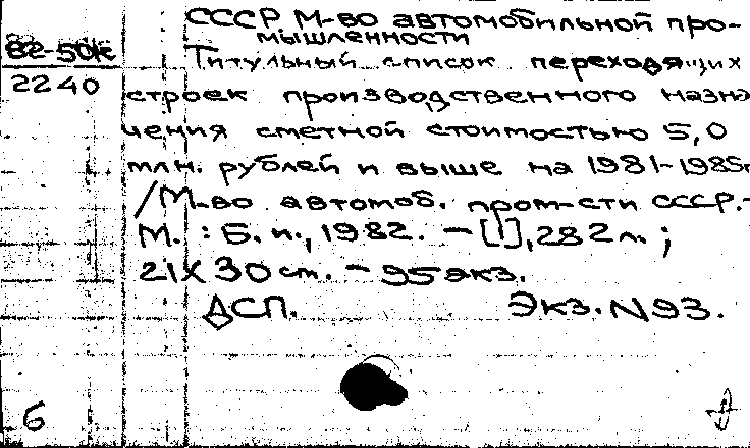 СССР М-во автомобильной про-
мышленности
82-50к
Титульный список переходящих
2240
строек производственного назна
чения сметной стоимостью 5,0
млн. рублей и выше на 1981-1985г
/М-во автомоб. пром-сти СССР.-
М. : Б. и., 1982. - [1], 282 л. ;
21х30 см. - 95 экз.
ДСП. Экз. N 93.
б